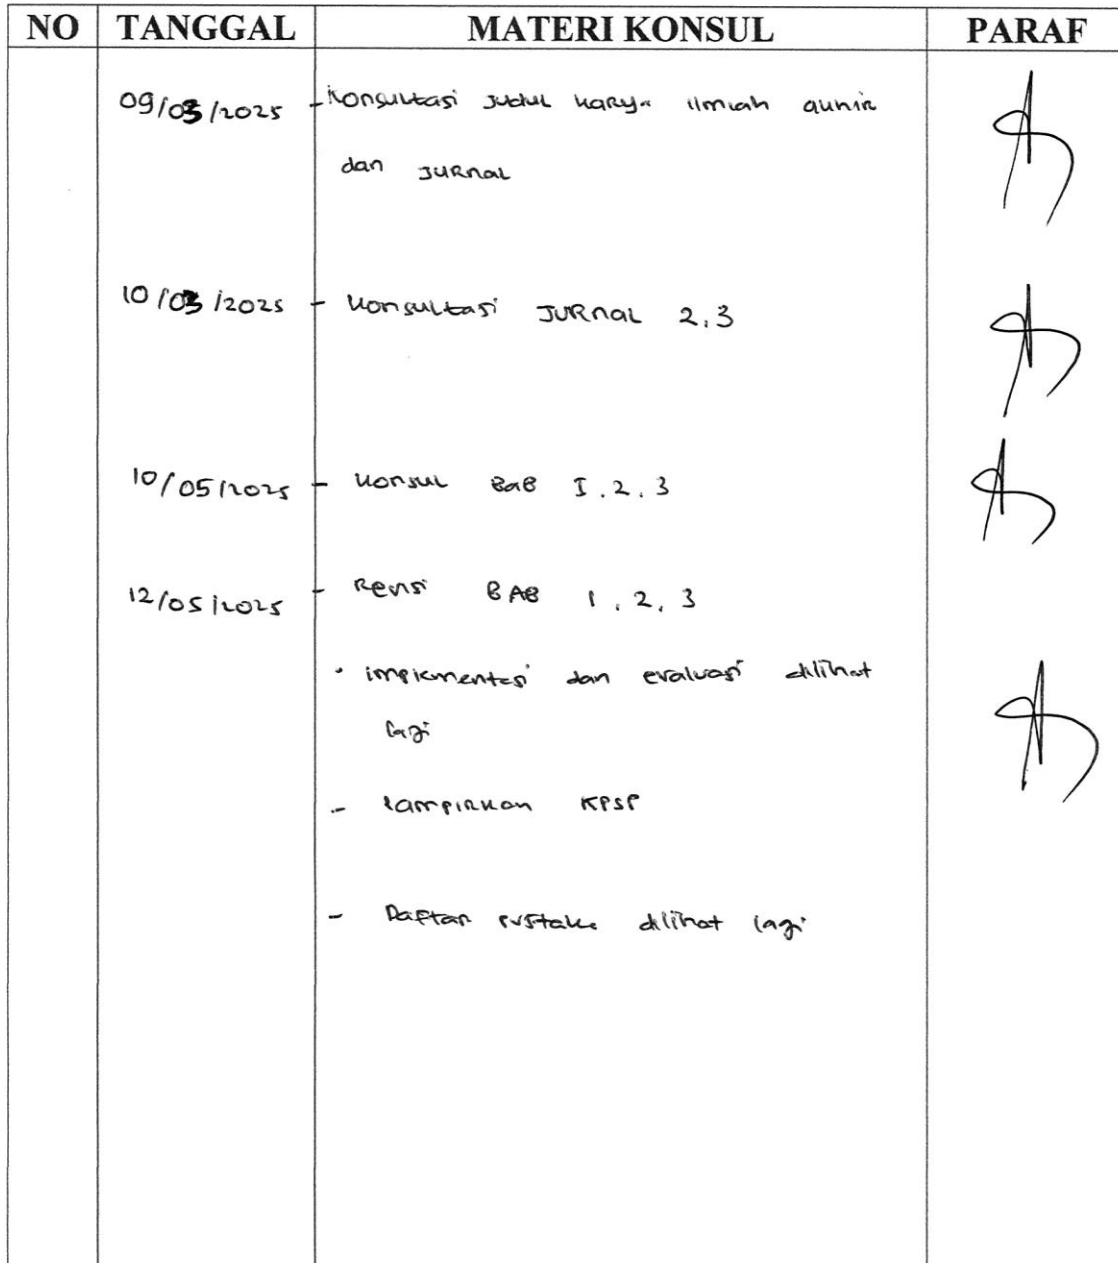 NO TANGGAL MATERI KONSUL PARAF
09/03/2025 - Konsultasi Judul karya ilmiah akhir
dan JURNAL
10/03/2025 - Konsultasi JURNAL 2,3
10/05/2025 - Konsul BAB I.2.3
12/05/2025 - Revisi BAB 1, 2, 3
• implementasi dan evaluasi dilihat
lagi
- lampirkan KPSP
- Daftar pustaka dilihat lagi